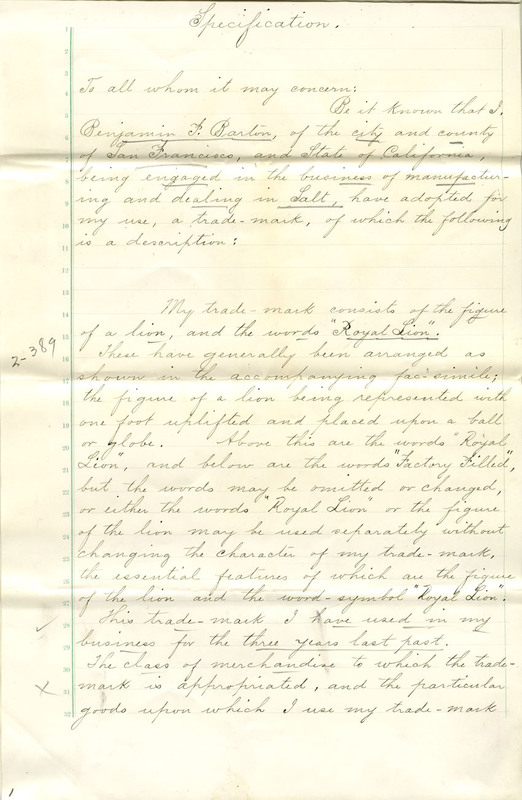 Specification.
To all whom it may concern:
Be it known that I,
Benjamin F. Barton, of the city and county
of San Francisco, and State of California,
being engaged in the business of manufactur-
ing and dealing in Salt, have adopted for
my use, a trade-mark, of which the following
is a description:
My trade-mark consists of the figure
of a lion, and the words "Royal Lion".
2-389
These have generally been arranged as
shown in the accompanying fac-simile;
the figure of a lion being represented with
one foot uplifted and placed upon a ball
or globe. Above this are the words "Royal
Lion", and below are the words "Factory Filled",
but the words may be omitted or changed,
or either the words "Royal Lion" or the figure
of the lion may be used separately without
changing the character of my trade-mark,
the essential features of which are the figure
of the lion and the word-symbol "Royal Lion".
This trade-mark I have used in my
business for the three years last past.
The class of merchandise to which the trade-
mark is appropriated, and the particular
goods upon which I use my trade-mark